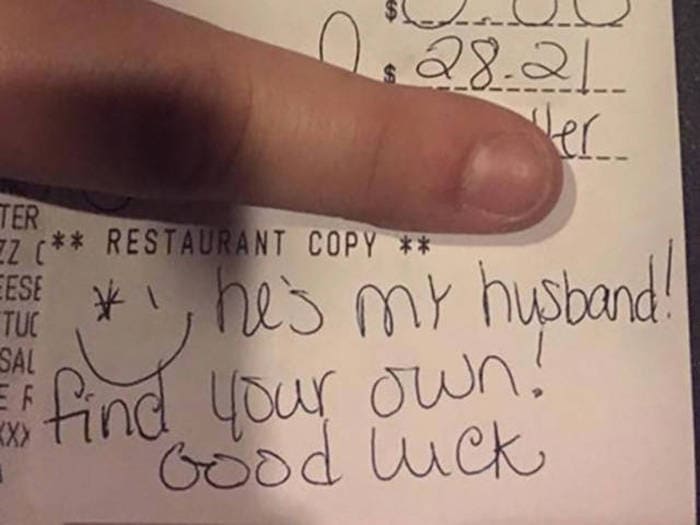 $ 0.00
$ 28.21
TER
ZZ C ** RESTAURANT COPY **
EESE
TUC
SAL
E F
XX
he's my husband!
find your own!
Good luck